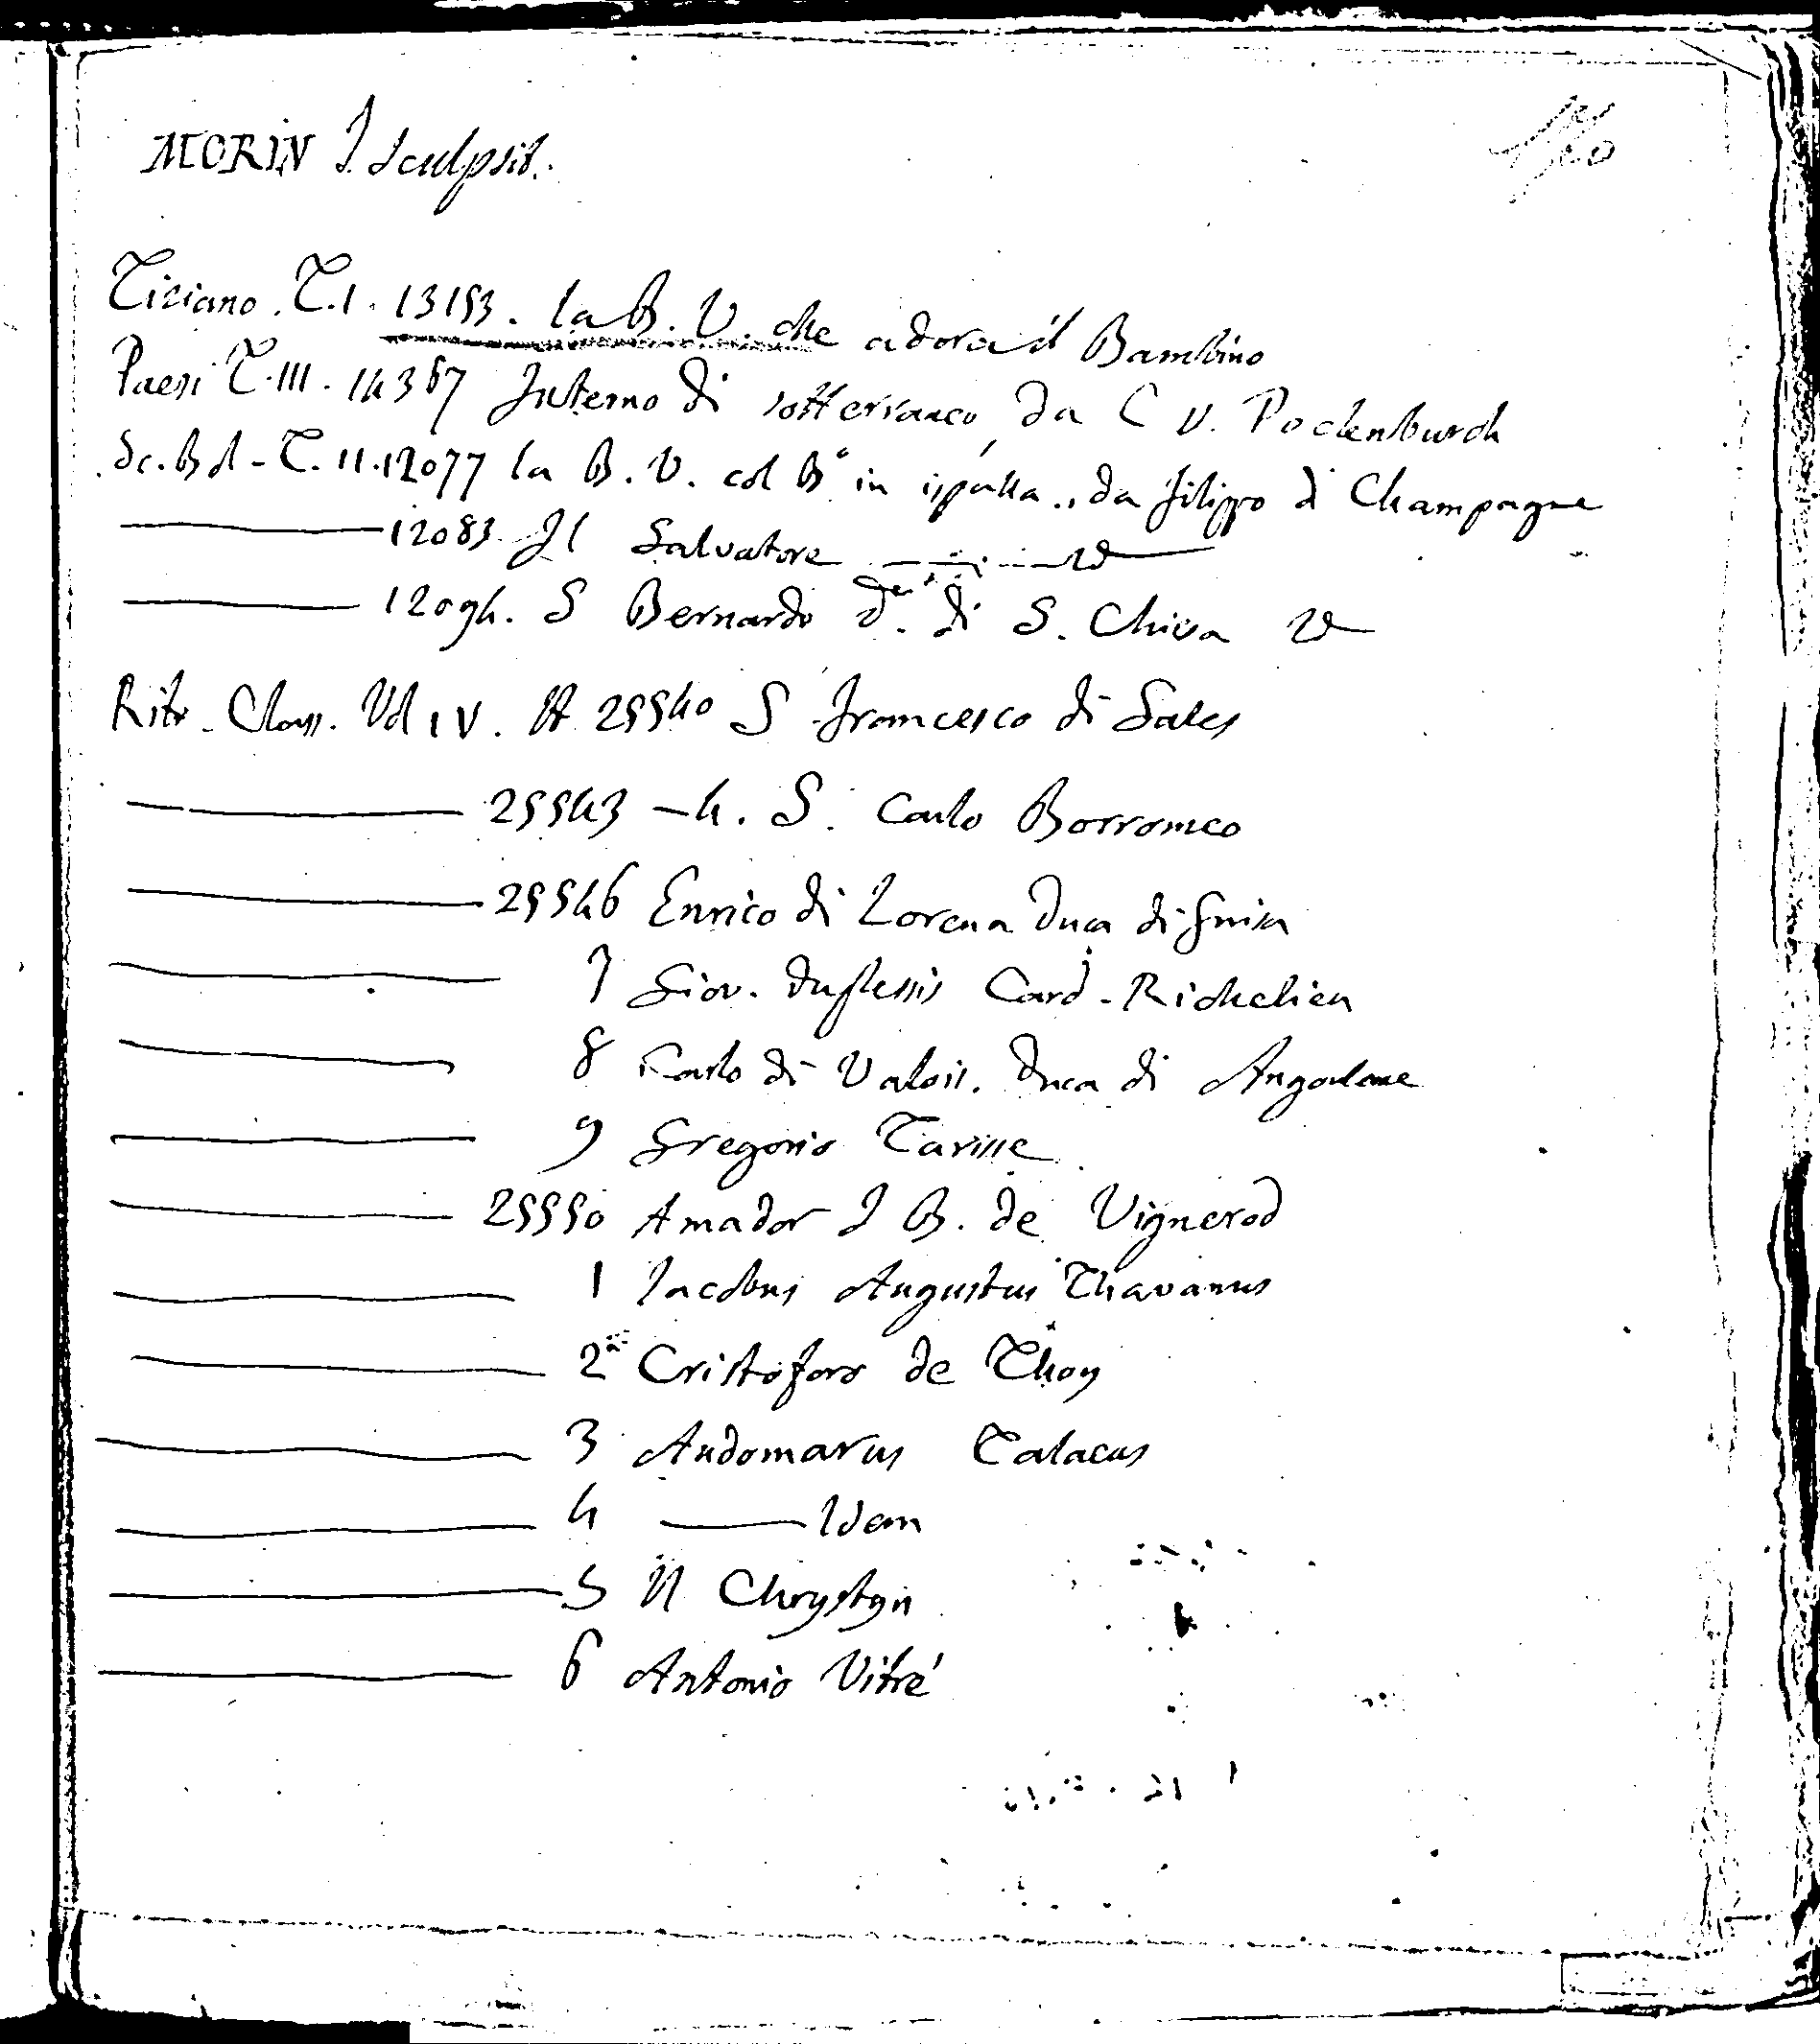 MORIN J sculpsit.
Tiziano. T.I. 13153. la B. V. che adora il Bambino
Paesi T. III. 14367 Interno di sotterraneo da C V. Poclenburch
Sc. Bol - T. II. 12077 la B. V. col Bº in ispalla, da Filippo di Champagne
12083 Il Salvatore id
12094. S Bernardo di S. Chiva id
Ritr. Class. Vol IV. A 25540 S Francesco di Sales
25543 - 4. S. Carlo Borromeo
25546 Enrico di Lorena Duca di Guisa
7 Giov. Duplessis Card. Richelieu
8 Carlo di Valois. Duca di Angouleme
9 Gregorio Tarisse
25550 Amador J B. de Vignerod
1 Iacobus Augustus Thavanus
2 Cristoforo de Thoy
3 Audomarus Talaeus
4 Idem
5 N Chrystyn
6 Antonio Vitré